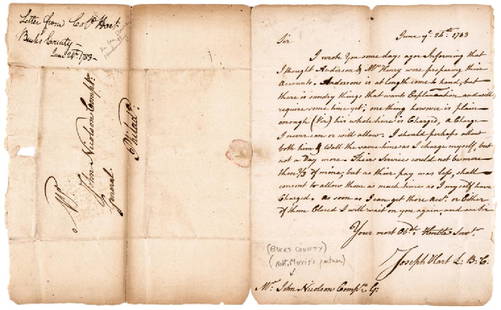 Letter from Col. Hart
Bucks County
June 24th 1783
Mr.
John Nicolson Comptr.
General
Philada.
June ye 24th 1783
Sir
I wrote you some days ago Informing that
I thought Anderson & Mc Henry were preparing their
Accounts. Anderson is at length come to hand, but
there is sundry things that wants Explanation and will
require some time yet; one thing however is plain
enough (Viz) his whole time is Charged, a Charge
I never can or will allow. I should perhaps allow
both him & the same time as I charge myself, but
not a Day more. Their Service could not be more
than of mine, but as their pay was less, shall
consent to allow them as much time as I myself have
Charged. as soon as I can get those Acts. or Either
of them Closed I will wait on you again, and
Your most Obt. Humble Servt.
Joseph Hart L. B. C.
(BUCKS COUNTY)
(Robt. Morris's partner)
Mr. John Nicolson Comptr. G.